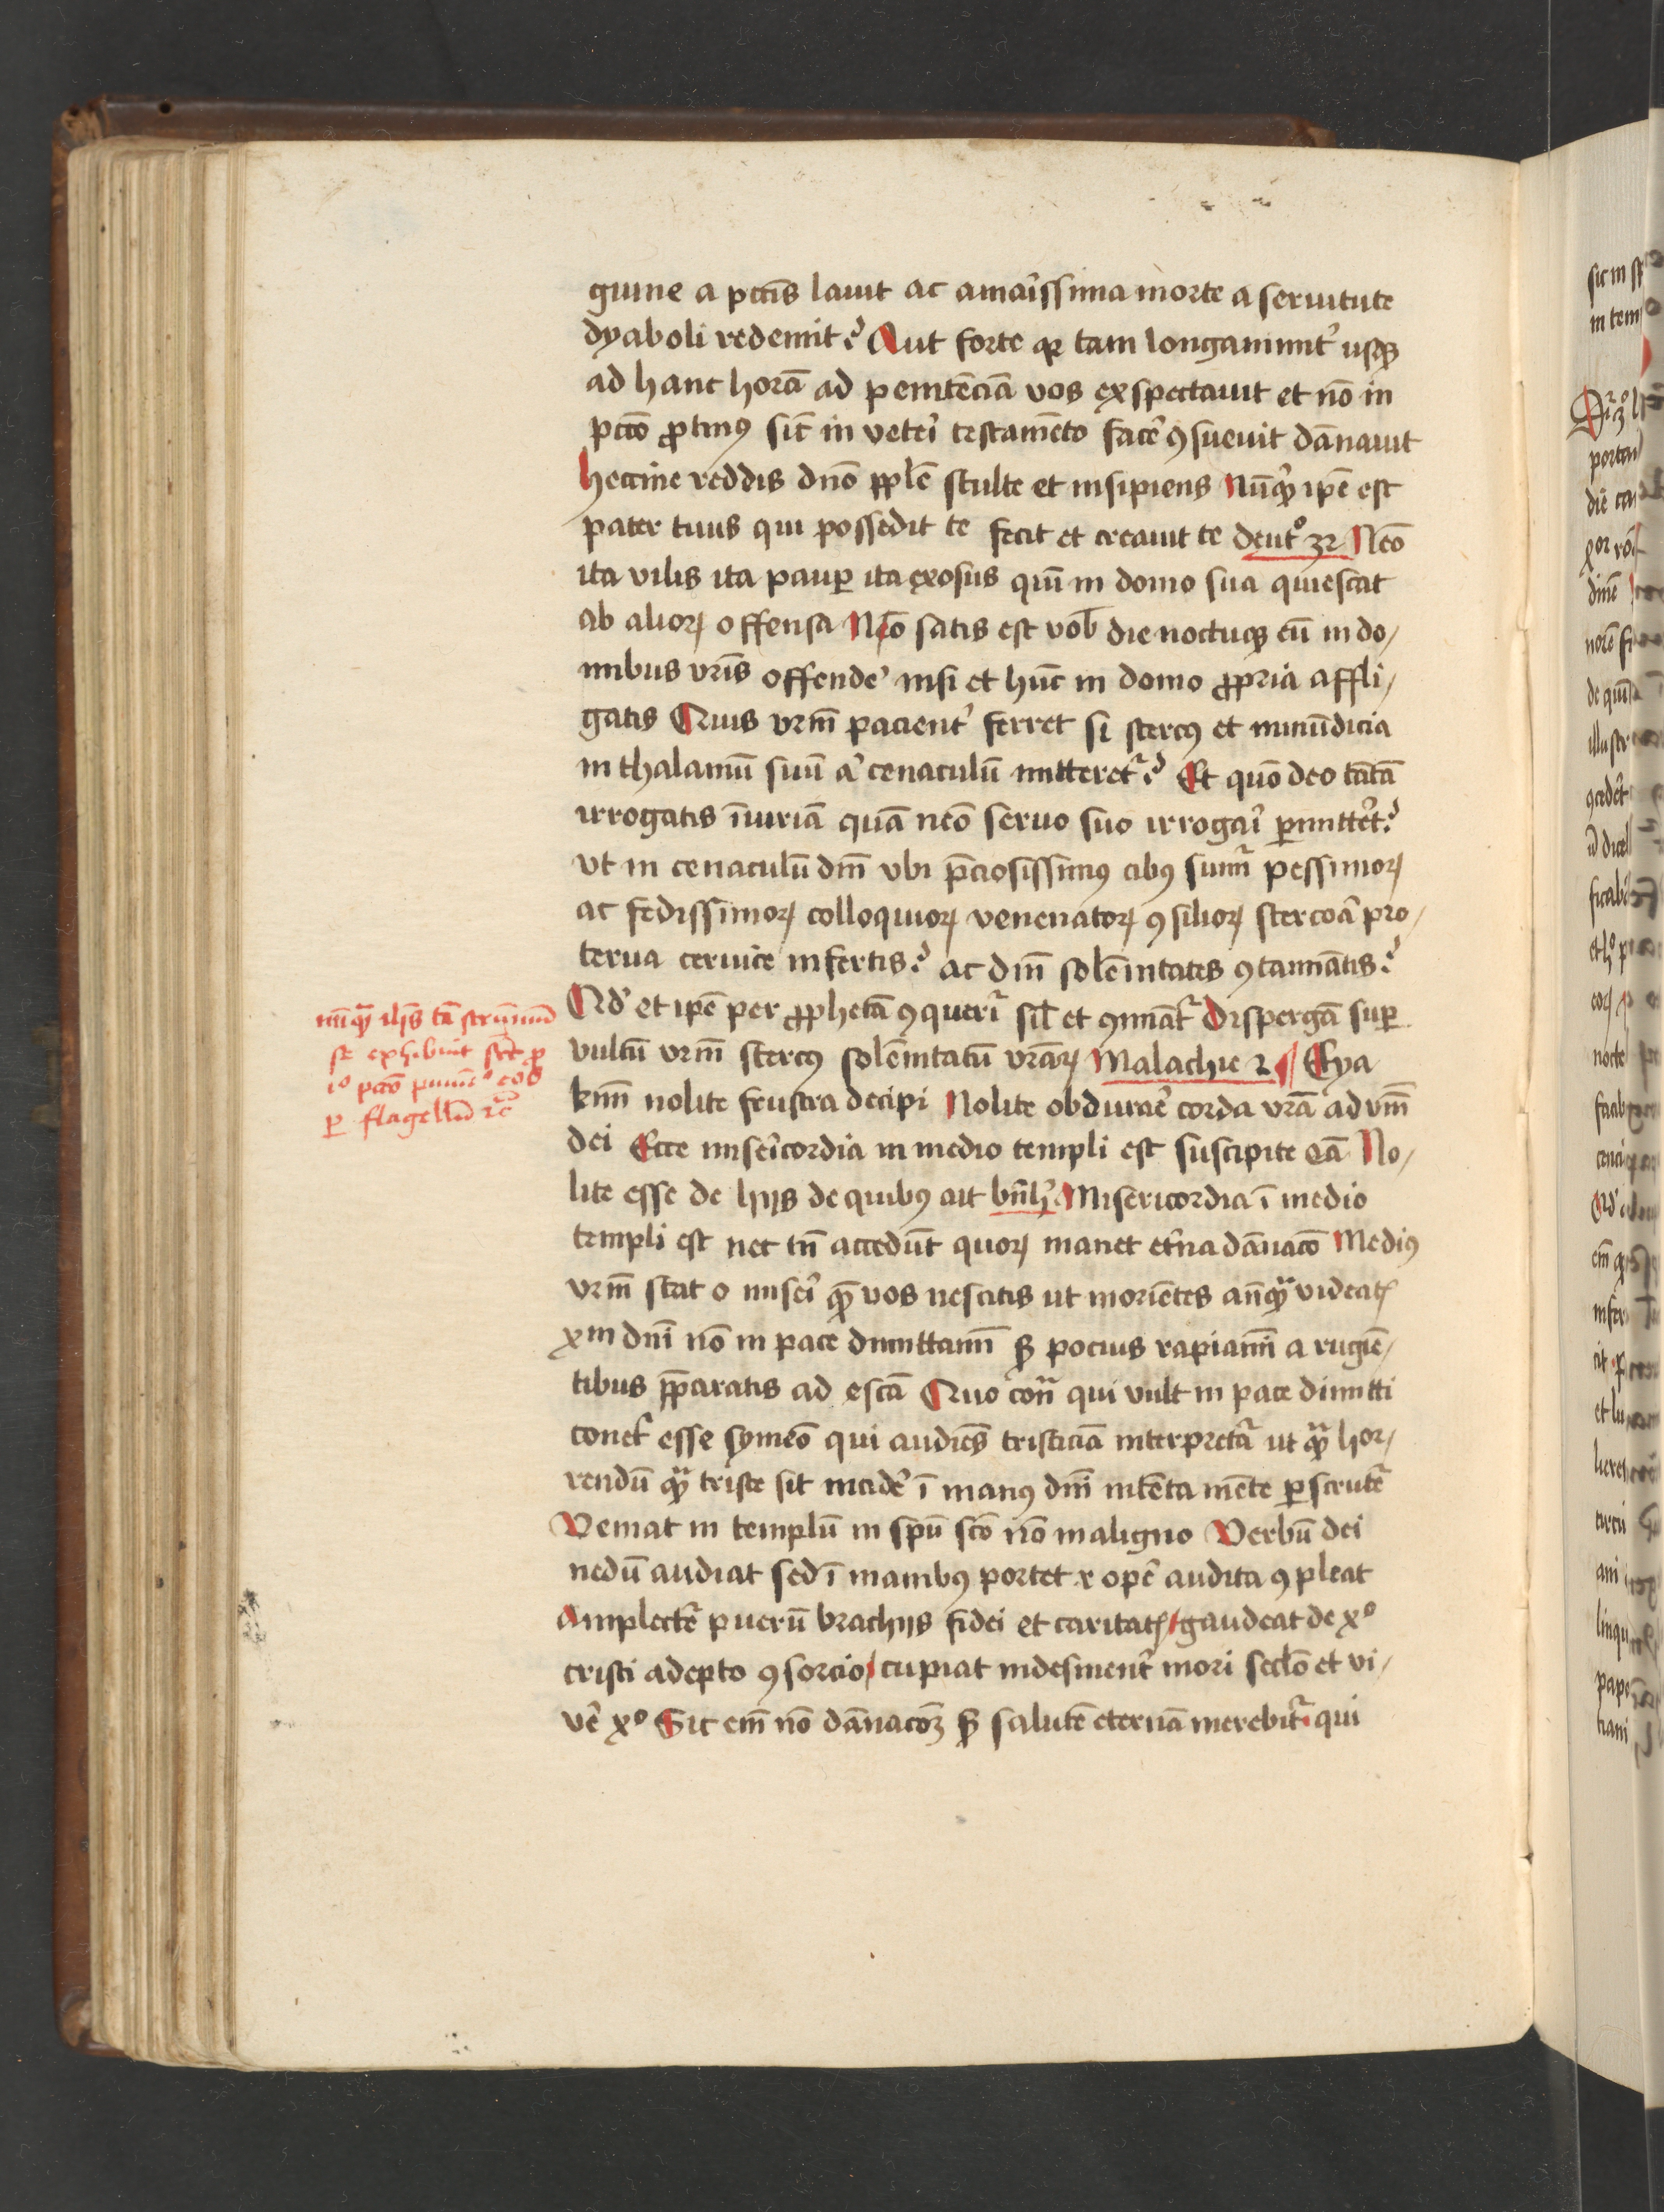 guine a pcc̄is lauit ac amar̄issima morte a seruitute
dyaboli redemit? Aut forte q̄ tam longanimit̾ usq̷
ad hanc horā ad penitēciā vos exspectauit et nō in
pcc̄o ꝓtinꝰ sic̄ in veter̄i testamēto facē ꝯsueuit dānauit
heccine reddis dn̄o pp̄le stulte et insipiens Nūq̷ ip̄e est
pater tuus qui possedit te fecit et creauit te deut° 32 Nēo
ita vilis ita paup̱ ita exosus quī in domo sua quiescat
ab alioꝝ offensa Nō satis est vob̄ die noctuq̷ eū in do/
mibus vr̄is offendē nisi et hūc in domo ꝓpria affli/
gatis Quis vr̄m pacient̾ ferret si stercꝰ et inmūdicia
in thalamū suū a᷑ cenaculū mitteret᷑? Et quō deo tātā
irrogatis īiuriā quā nēo seruo suo irrogar̄i p̱mittēt?
vt in cenaculū dn̄i vbi p̄ciosissimꝰ cibꝰ sumit᷑ pessimoꝝ
ac fedissimoꝝ colloquioꝝ venenatoꝝ ꝯsilioꝝ stercoā pro/
terua ceruice infertis? ac dn̄i solēnitates ꝯtamīatis?
Nō et ip̄e per ꝓphetā ꝯquerit᷑ sil̄ et ꝯminat᷑ Dispergā sup̱
vultū vr̄m stercꝰ solēnitatū vr̄aꝝ Malachie 2 ¶ Eya
km̄i nolite frustra decipi Nolite obdurar̄e corda vr̄a ad v̄m
dei Ecce miser̄icordia in medio templi est suscipite eā No/
lite esse de hijs de quibꝰ ait bn̄h᷑ Misericordia ī medio
templi est nec tn̄ accedūt quoꝝ manet et̄na dānacō Mediꝰ
vr̄m stat o miser̄i quē vos nescitis ut moriētes anq̷ᷓ videatꝭ
xp̄m dn̄i nō in pace dimittam̄i s̷ pocius rapiam̄i a rugiē/
tibus p̄paratis ad escā Quo con᷑ qui vult in pace dimitti
conet᷑ esse symeō qui audiēs tristiciā interpretat᷑ ut q̷ᷓ hor/
rendū q̷ᷓ triste sit incidē ī manꝰ dn̄i intēta mēte p̱scrutet᷑
Veniat in templū in sp̄u scō nō maligno Verbū dei
nedū audiat sed ī manibꝰ portet ⁊ opē audita ꝯpleat
Amplectet᷑ puerū brachijs fidei et caritatꝭ gaudeat de x°
cristi adepto ꝯsorcio cupiat indesinent̾ mori secl̄o et vi/
vē x° Sic em̄ nō dānacōꝫ s̷ salutē eternā merebit᷑ qui
nūq̷ᷓ illis tā
se exhibuit
iō pcc̄o puniuit eos
p̱ flagellū ⁊c̄